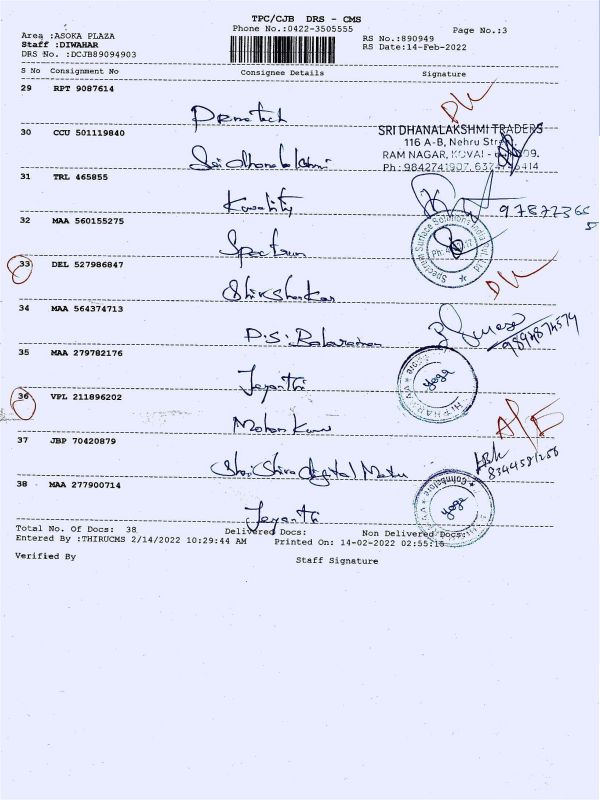 TPC/CJB DRS - CMS
Phone No.:0422-3505555
Page No.:3
Area :ASOKA PLAZA
Staff :DIWAHAR
DRS No. :DCJB89094903
RS No.:890949
RS Date:14-Feb-2022
S No Consignment No Consignee Details Signature
29 RPT 9087614
30 CCU 501119840
SRI DHANALAKSHMI TRADERS
116 A-B, Nehru
RAM NAGAR, KOVAI -
Sri dhanalakshmi
31 TRL 465855
Ph: 9842741907
Kwality
32 MAA 560155275
Spectrum
Spectrum Surface Solutions India Pvt. Ltd
33 DEL 527986847
34 MAA 564374713
P.S. Balaraman
35 MAA 279782176
Jeyanthi
yoga
36 VPL 211896202
Mohan
A/F
37 JBP 70420879
Shri Shiva digital
38 MAA 277900714
Coimbatore
yoga
Jeyanthi
Total No. of Docs: 38 Delivered Docs: Non Delivered Docs:
Entered By :THIRUCMS 2/14/2022 10:29:44 AM Printed On: 14-02-2022 02:55:16
Verified By Staff Signature